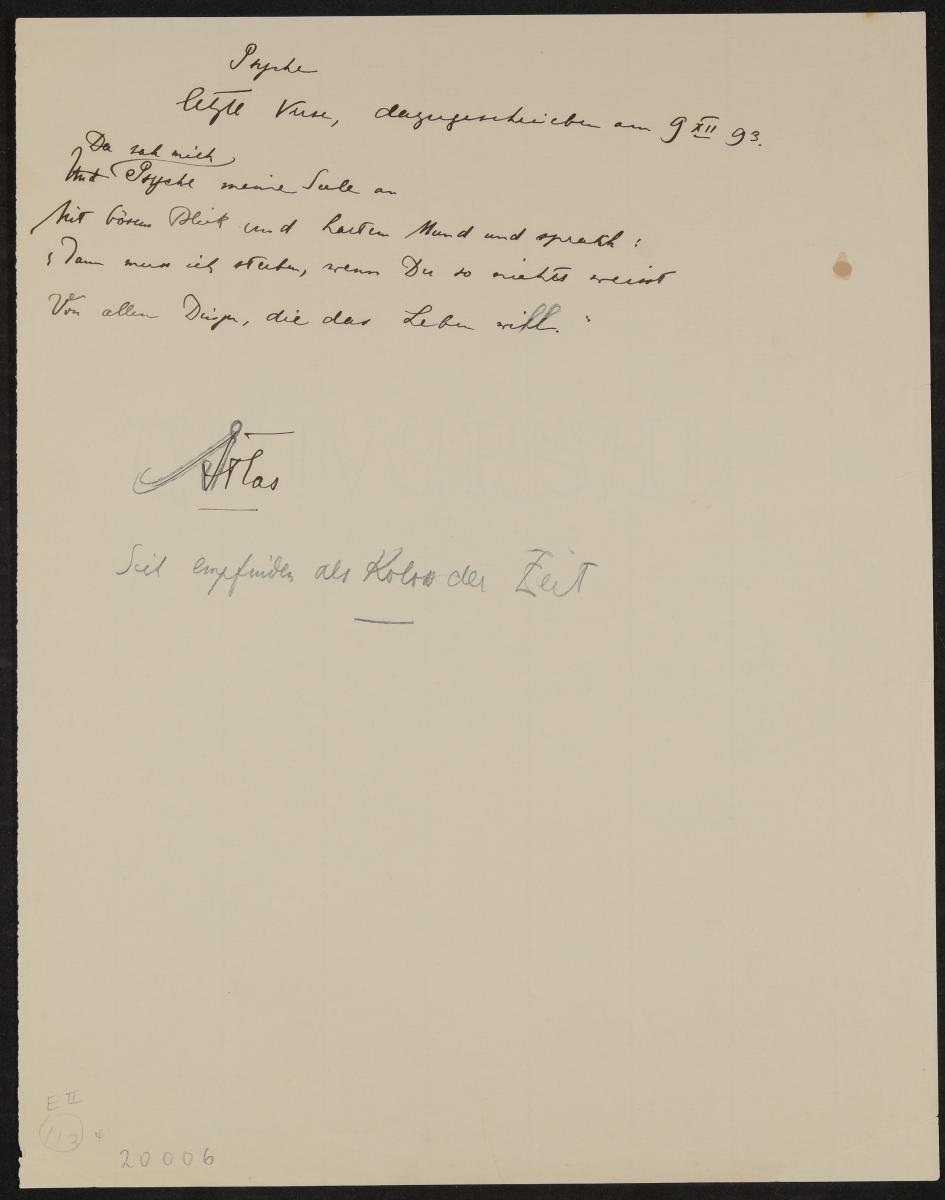 Psyche
letzte Verse, dazugeschrieben am 9 XII 93.
Da sah mich
Und Psyche meine Seele an
Mit bösem Blick und hartem Mund und sprach:
„Dann muss ich sterben, wenn Du so nichts weisst
Von allen Dingen, die das Leben will."
Atlas
empfinden als Koloss der Zeit
E II
113
20006